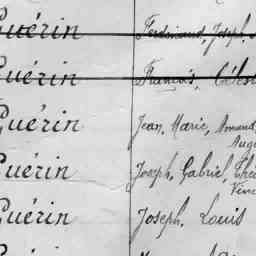 Guérin Ferdinand, Joseph,
Guérin François, Célest
Guérin Jean, Marie, Armand,
Augu
Guérin Joseph, Gabriel,
Vinc
Guérin Joseph, Louis